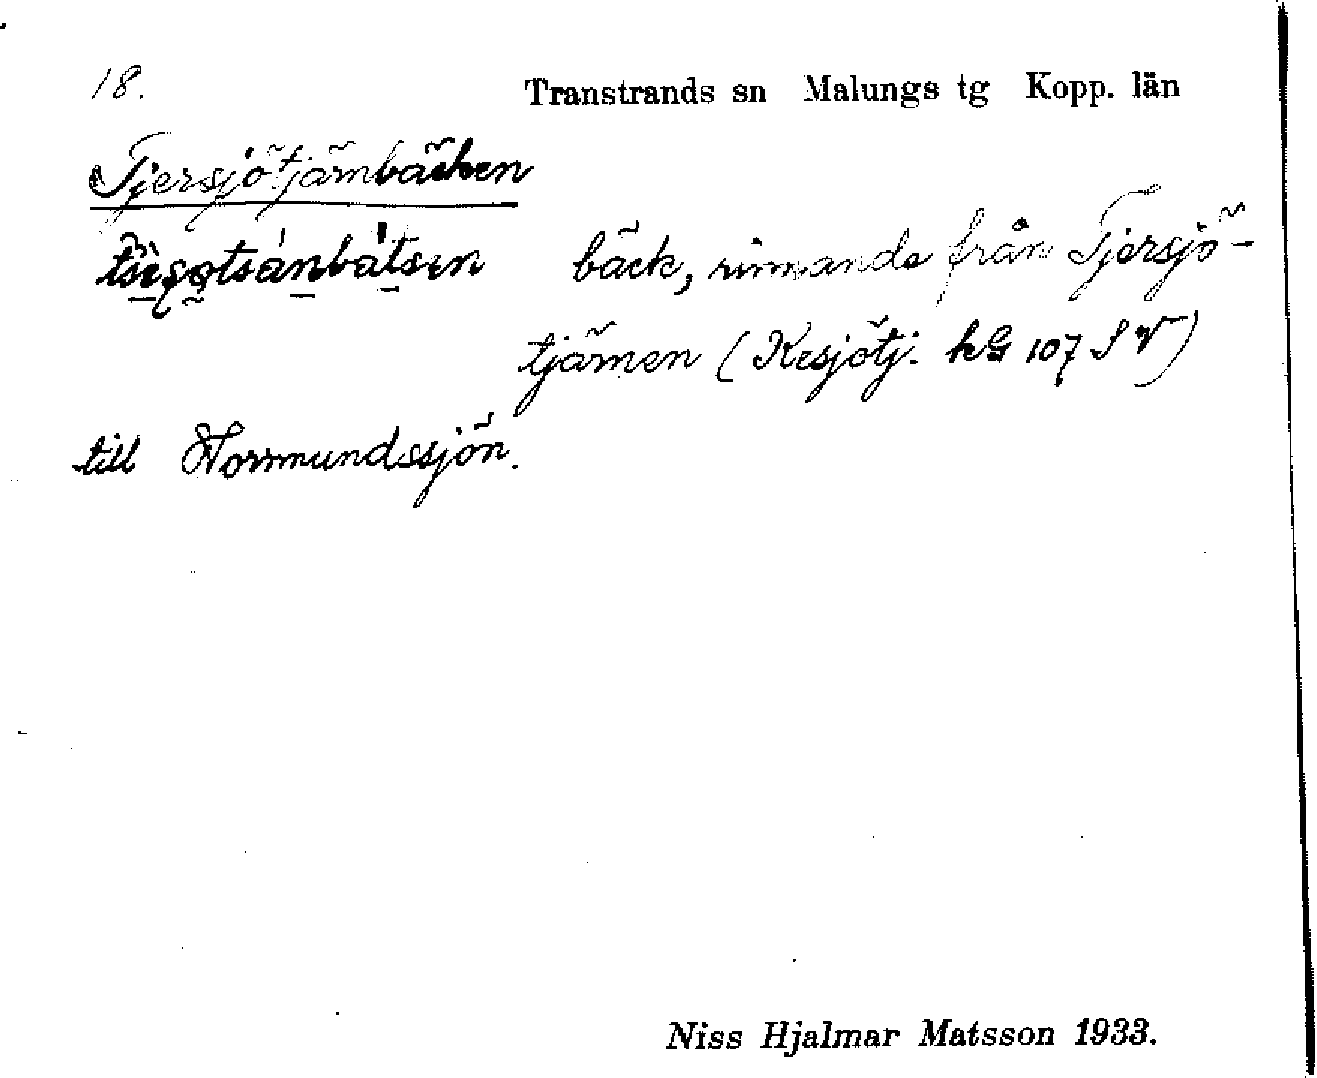 18.
Transtrands sn Malungs tg Kopp. län
Tjersjötjärnbäcken
bäck, rinnande från Tjersjö-
tjärnen (Kesjötj. hG 107 S V)
till Hormundssjön.
Niss Hjalmar Matsson 1933.